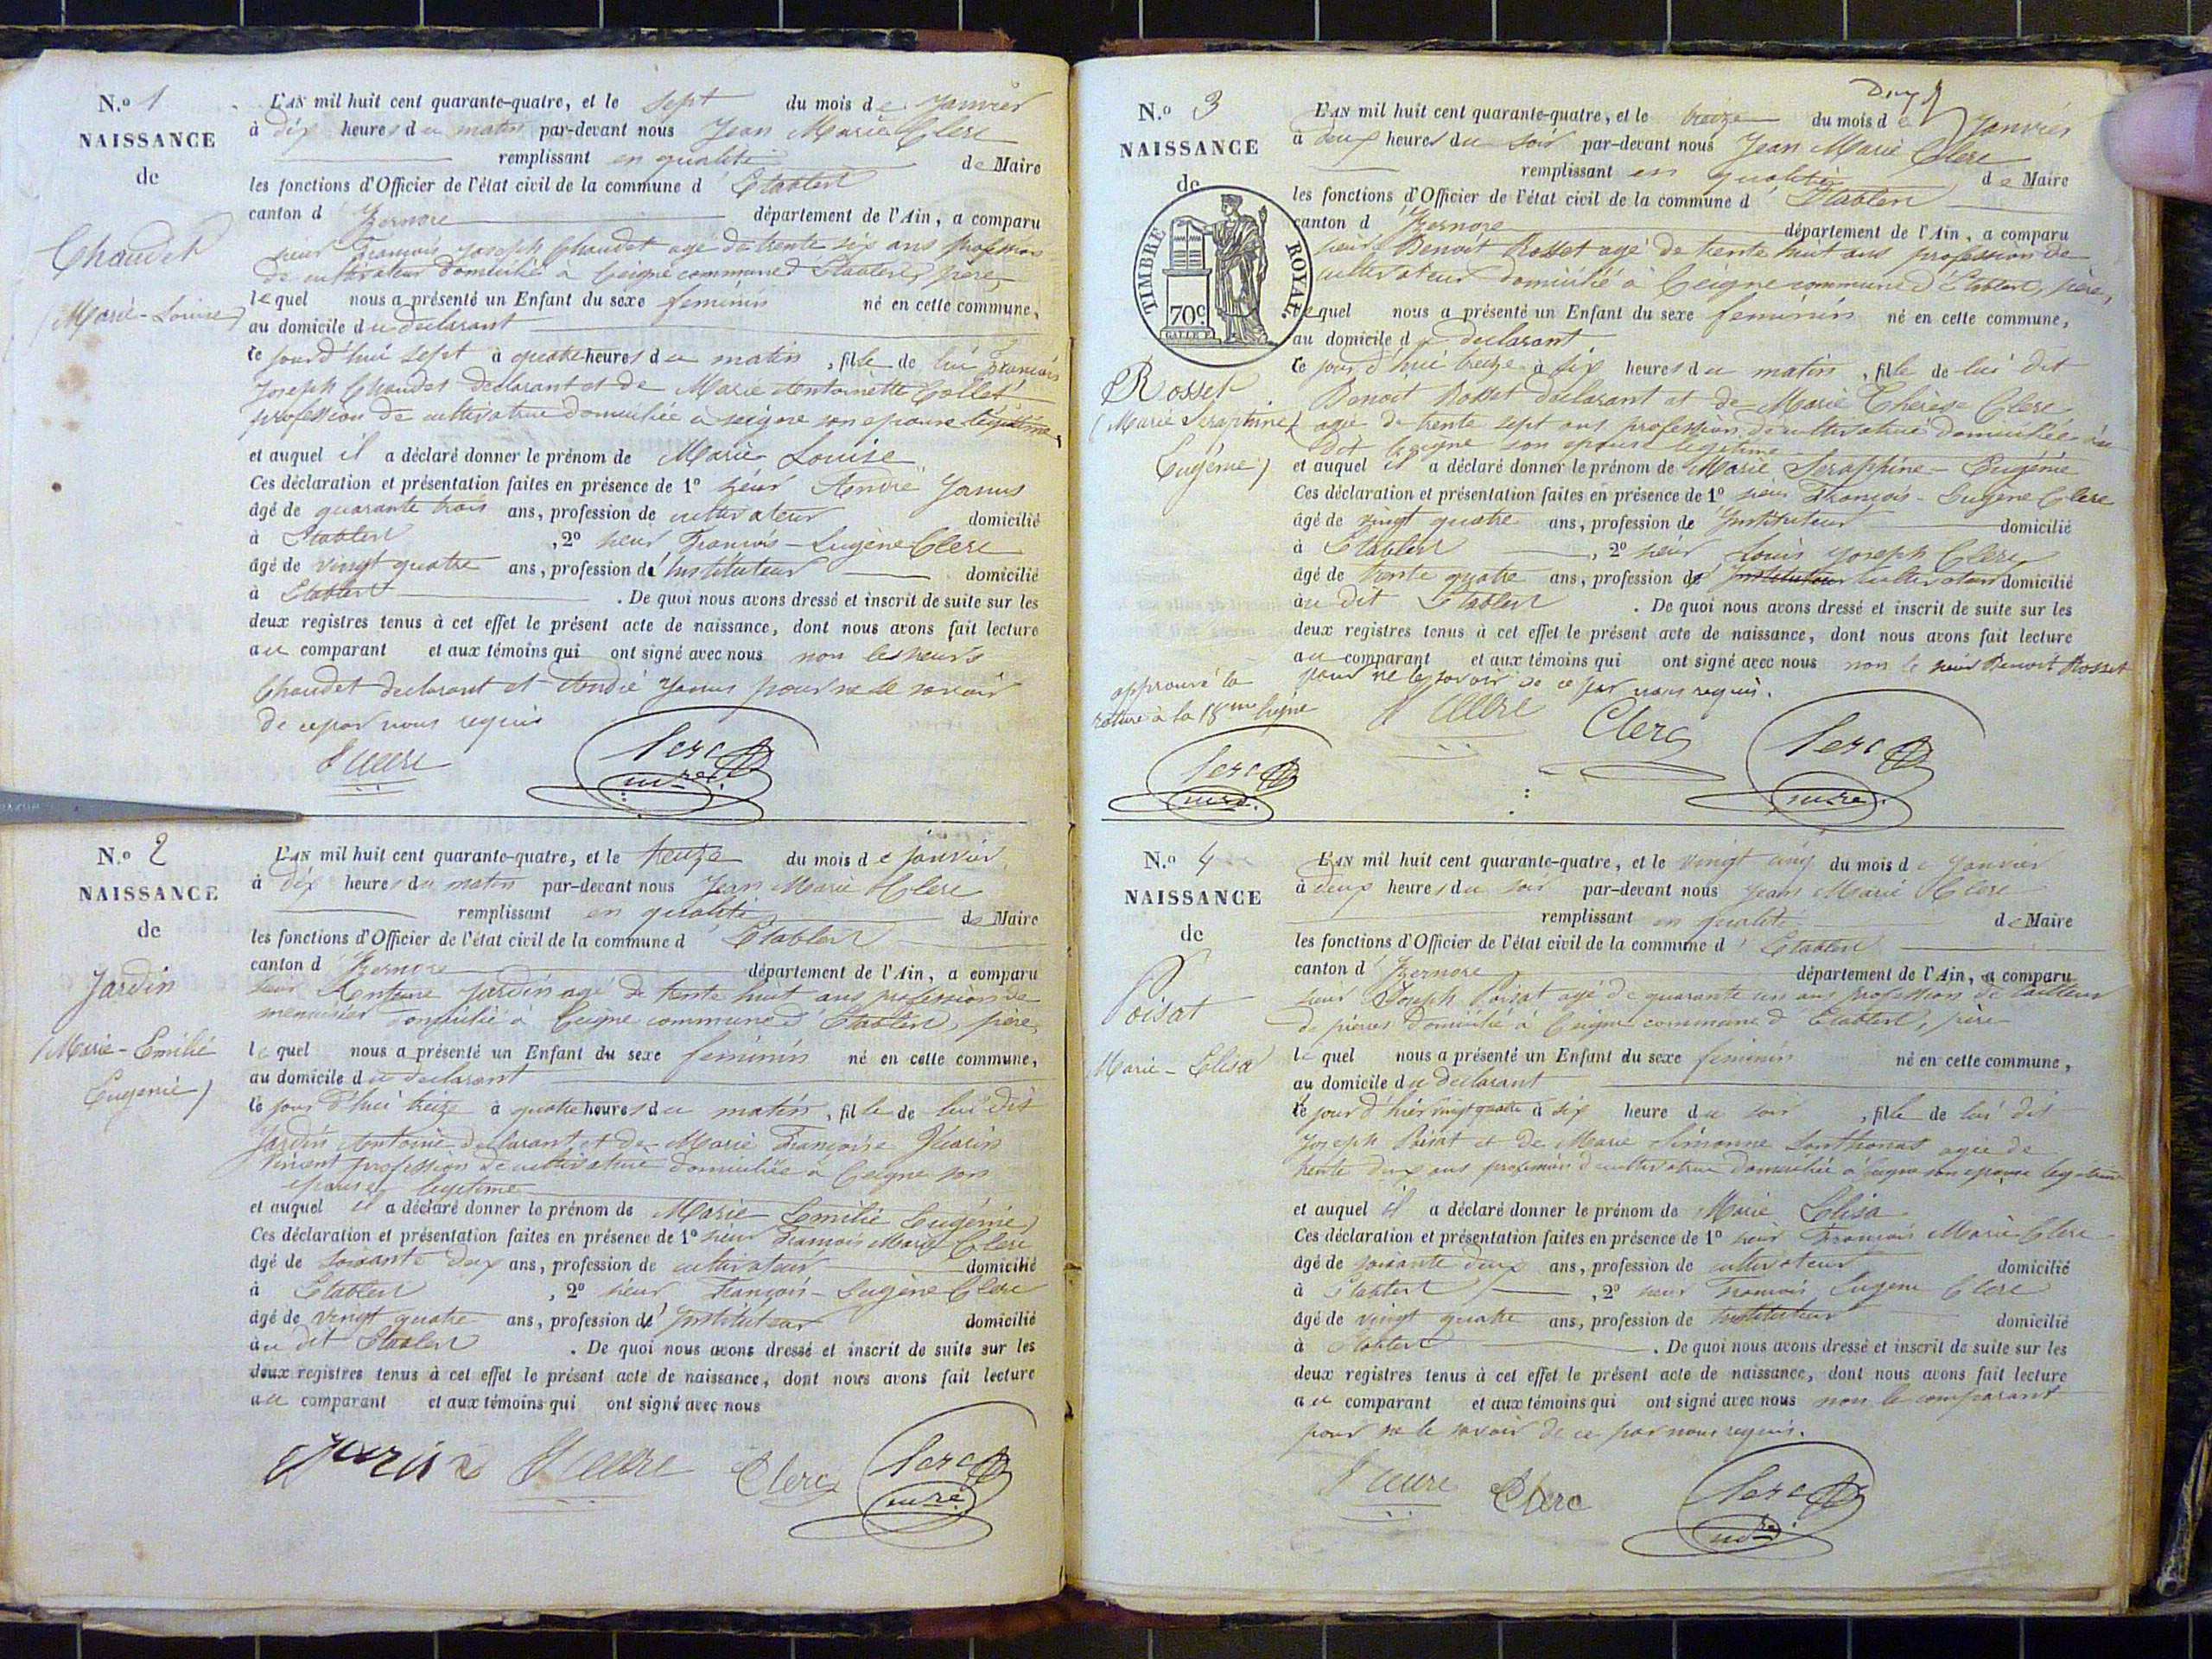 N.º 1
NAISSANCE
de
Chaudet
(Marie-Louise)
L'AN mil huit cent quarante-quatre, et le sept du mois de Janvier
à dix heures du matin par-devant nous Jean Marie Clerc
remplissant en qualité de Maire
les fonctions d'Officier de l'état civil de la commune d'Etables
canton d'Izernore département de l'Ain, a comparu
sieur François Joseph Chaudet agé de trente six ans profession
de cultivateur domicilié à Ceigne commune d'Etables, père,
lequel nous a présenté un Enfant du sexe feminin né en cette commune,
au domicile du declarant
le jourd'hui sept à quatre heures du matin, fille de lui François
Joseph Chaudet declarant et de Marie Antoinette Collet
profession de cultivatrice domiciliée à ceigne son epouse légitime
et auquel il a déclaré donner le prénom de Marie Louise
Ces déclaration et présentation faites en présence de 1º sieur André
âgé de quarante trois ans, profession de cultivateur domicilié
à Etables, 2º sieur François-Eugène Clerc
âgé de vingt quatre ans, profession d'Instituteur domicilié
à Etables. De quoi nous avons dressé et inscrit de suite sur les
deux registres tenus à cet effet le présent acte de naissance, dont nous avons fait lecture
au comparant et aux témoins qui ont signé avec nous non les sieurs
Chaudet declarant et André pour ne le savoir
de ce par nous requis
Clerc mre
N.º 2
NAISSANCE
de
Jardin
(Marie-Emilie
Eugenie)
L'AN mil huit cent quarante-quatre, et le treize du mois de janvier
à dix heures du matin par-devant nous Jean Marie Clerc
remplissant en qualité de Maire
les fonctions d'Officier de l'état civil de la commune d'Etables
canton d'Izernore département de l'Ain, a comparu
sieur Antoine Jardin agé de trente huit ans profession de
menuisier domicilié à Ceigne commune d'Etables, père,
lequel nous a présenté un Enfant du sexe feminin né en cette commune,
au domicile du declarant
le jour d'hui treize à quatre heures du matin, fille de lui dit
Jardin Antoine declarant et de Marie Françoise
Vincent profession de cultivatrice domiciliée à Ceigne son
epouse legitime
et auquel il a déclaré donner le prénom de Marie Emilie Eugénie
Ces déclaration et présentation faites en présence de 1º sieur François Marie Clerc
âgé de soixante deux ans, profession de cultivateur domicilié
à Etables, 2º sieur François-Eugène Clerc
âgé de vingt quatre ans, profession d'Instituteur domicilié
au dit Etables. De quoi nous avons dressé et inscrit de suite sur les
deux registres tenus à cet effet le présent acte de naissance, dont nous avons fait lecture
au comparant et aux témoins qui ont signé avec nous
Clerc Clerc mre
N.º 3
NAISSANCE
de
TIMBRE ROYAL
70c
Rosset
(Marie Seraphine
Eugénie)
approuvé la
rature à la 18me ligne
Clerc mre
L'AN mil huit cent quarante-quatre, et le treize du mois de Janvier
à deux heures du soir par-devant nous Jean Marie Clerc
remplissant en qualité de Maire
les fonctions d'Officier de l'état civil de la commune d'Etables
canton d'Izernore département de l'Ain, a comparu
sieur Benoit Rosset agé de trente huit ans profession de
cultivateur domicilié à Ceigne commune d'Etables, père,
lequel nous a présenté un Enfant du sexe feminin né en cette commune,
au domicile du declarant
le jour d'hui treize à six heures du matin, fille de lui dit
Benoit Rosset declarant et de Marie Thérèse Clerc
agée de trente sept ans profession de cultivatrice domiciliée au
dit Ceigne son epouse legitime
et auquel il a déclaré donner le prénom de Marie Seraphine-Eugénie
Ces déclaration et présentation faites en présence de 1º sieur François-Eugene Clerc
âgé de vingt quatre ans, profession de Instituteur domicilié
à Etables, 2º sieur Louis Joseph Clerc
âgé de trente quatre ans, profession de Instituteur cultivateur domicilié
au dit Etables. De quoi nous avons dressé et inscrit de suite sur les
deux registres tenus à cet effet le présent acte de naissance, dont nous avons fait lecture
au comparant et aux témoins qui ont signé avec nous non le sieur Benoit Rosset
pour ne le savoir de ce par nous requis.
Clerc Clerc mre
N.º 4
NAISSANCE
de
Poisat
Marie-Elisa
L'AN mil huit cent quarante-quatre, et le vingt cinq du mois de Janvier
à deux heures du soir par-devant nous Jean Marie Clerc
remplissant en qualité de Maire
les fonctions d'Officier de l'état civil de la commune d'Etables
canton d'Izernore département de l'Ain, a comparu
sieur Joseph Poisat agé de quarante un ans profession de tailleur
de pierres domicilié à Ceigne commune d'Etables, père
lequel nous a présenté un Enfant du sexe feminin né en cette commune,
au domicile du declarant
le jour d'hier vingt quatre à six heure du soir, fille de lui dit
Joseph Poisat et de Marie Simonne agée de
trente deux ans profession de cultivatrice domiciliée à Ceigne son epouse legitime
et auquel il a déclaré donner le prénom de Marie Elisa
Ces déclaration et présentation faites en présence de 1º sieur François Marie Clerc
âgé de soixante deux ans, profession de cultivateur domicilié
à Etables, 2º sieur François Eugene Clerc
âgé de vingt quatre ans, profession de Instituteur domicilié
à Etables. De quoi nous avons dressé et inscrit de suite sur les
deux registres tenus à cet effet le présent acte de naissance, dont nous avons fait lecture
au comparant et aux témoins qui ont signé avec nous non le comparant
pour ne le savoir de ce par nous requis.
Clerc Clerc mre